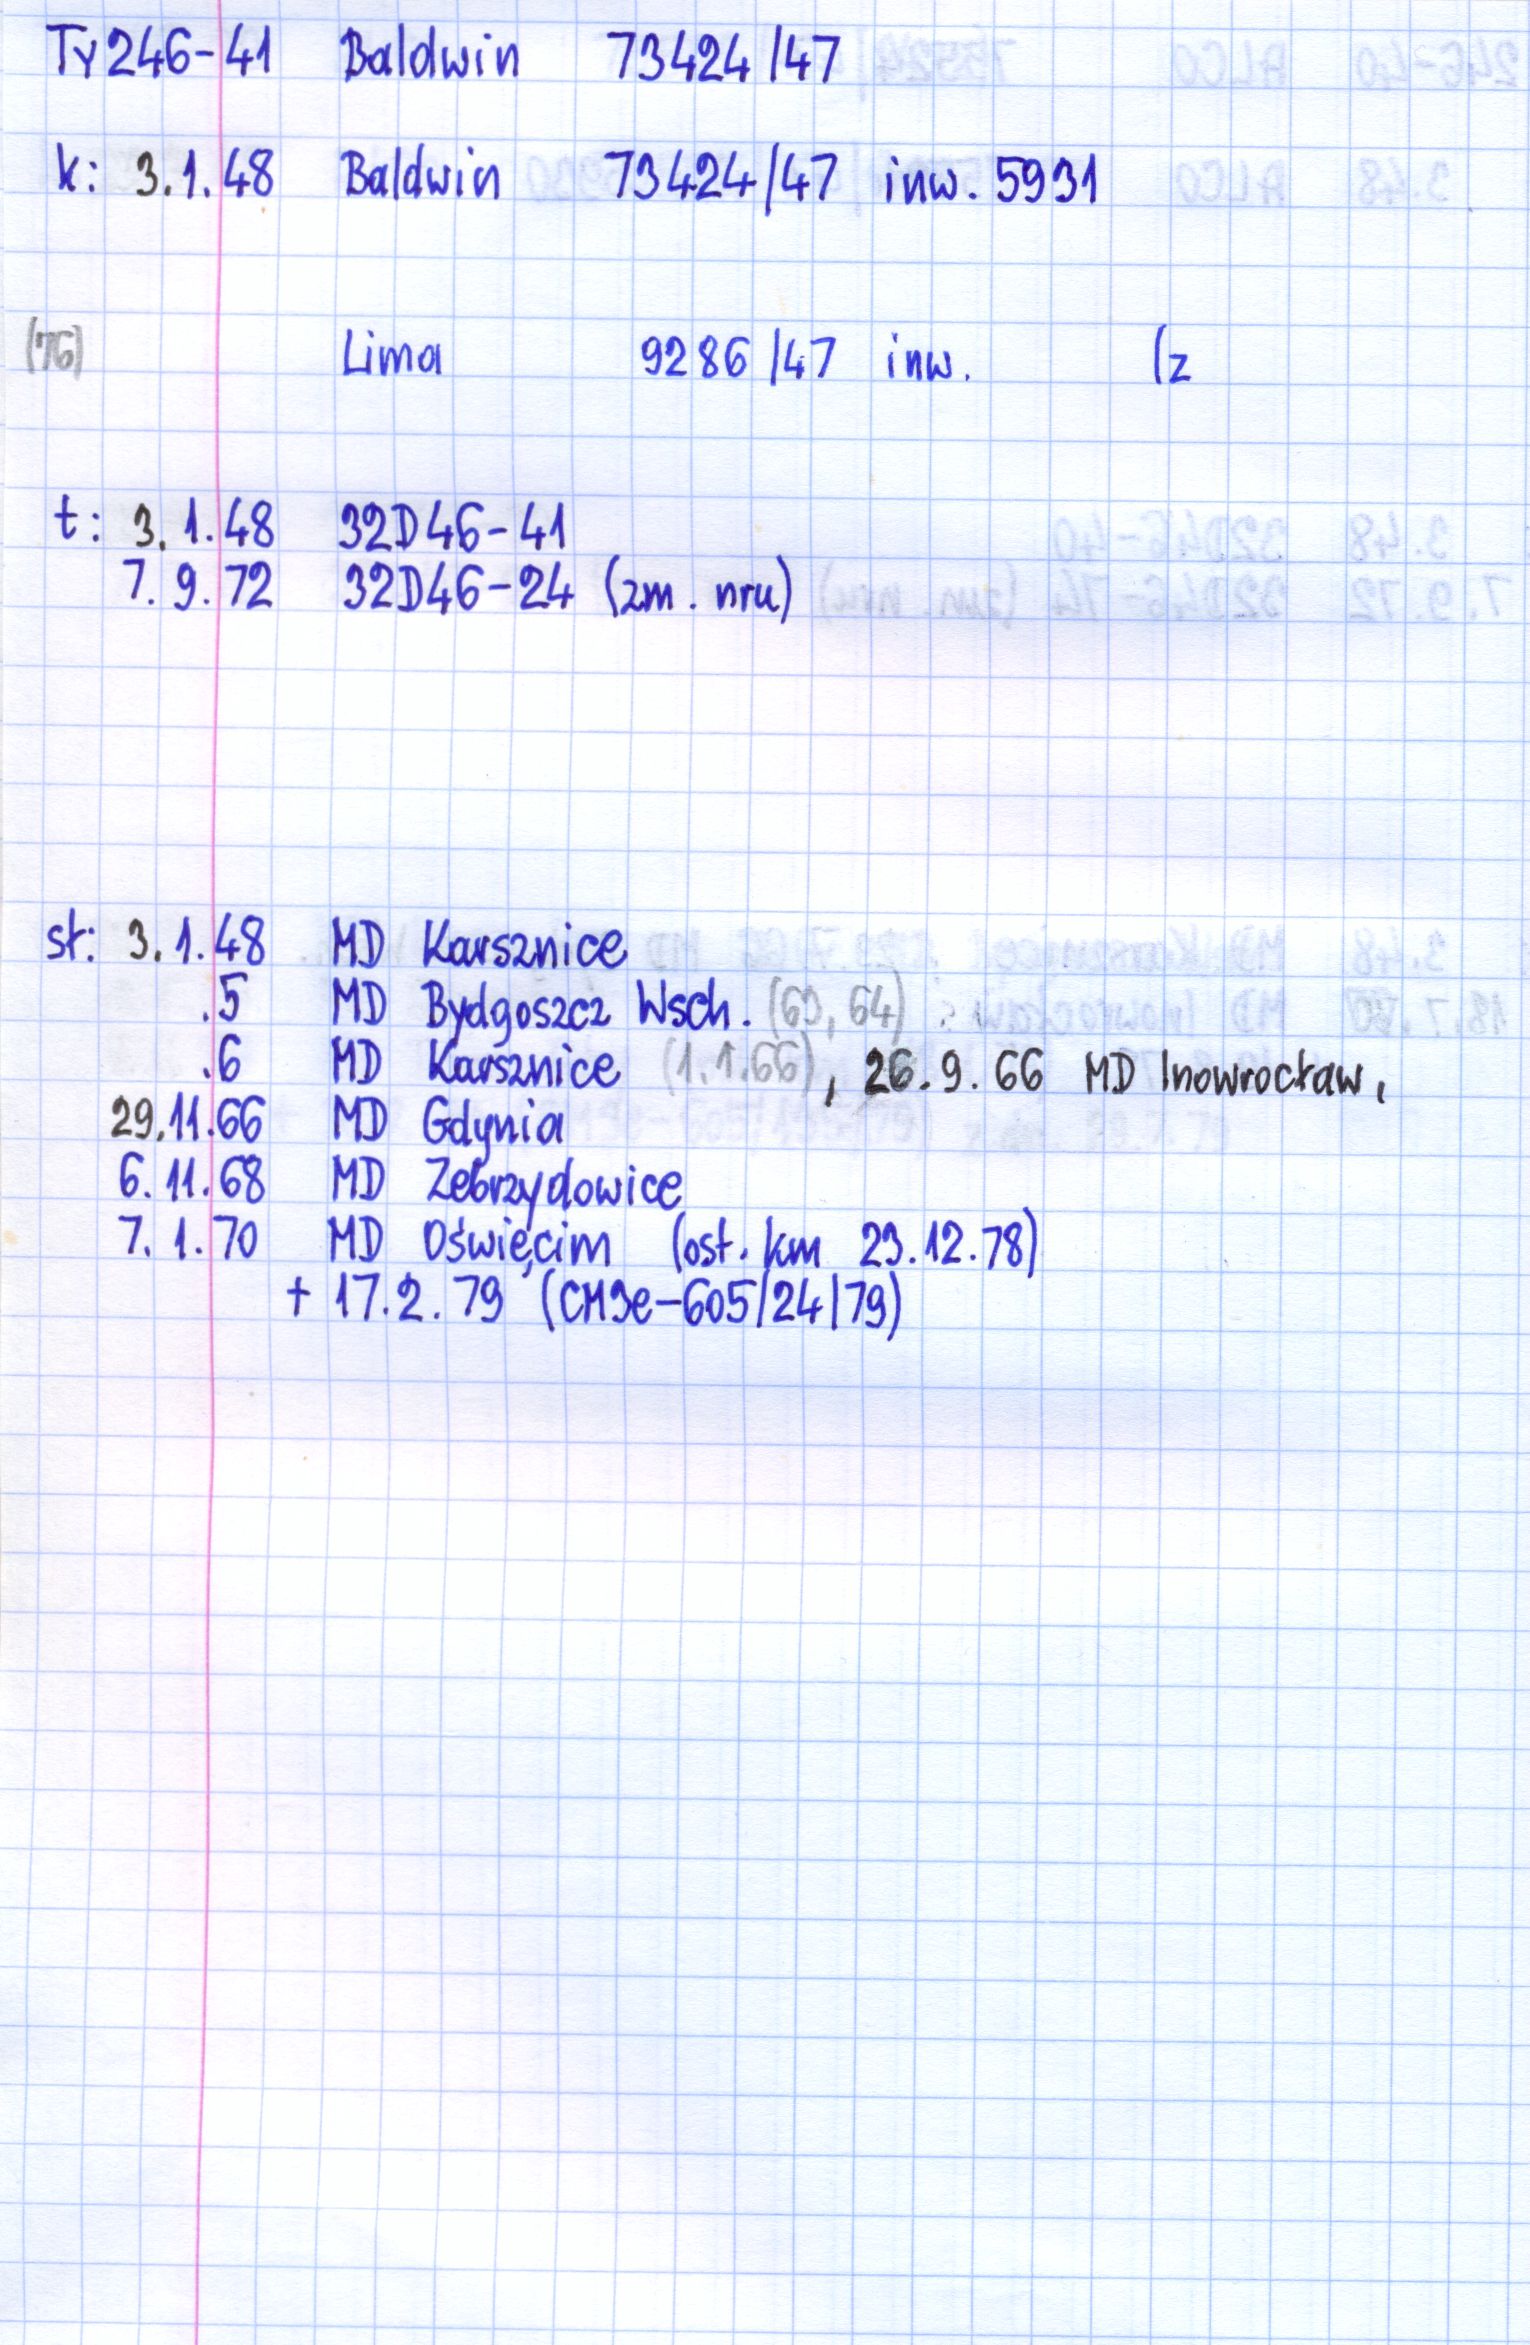 Ty246-41 Baldwin 73424/47
k: 3.1.48 Baldwin 73424/47 inw. 5931
(76) Lima 9286/47 inw. (z
t: 3.1.48 32D46-41
7.9.72 32D46-24 (zm. nru)
st: 3.1.48 MD Karsznice
.5 MD Bydgoszcz Wsch. (63, 64)
.6 MD Karsznice (1.1.66), 26.9.66 MD Inowrocław,
29.11.66 MD Gdynia
6.11.68 MD Zebrzydowice
7.1.70 MD Oświęcim (ost. km 23.12.78)
+ 17.2.79 (CM3e-605/24/79)